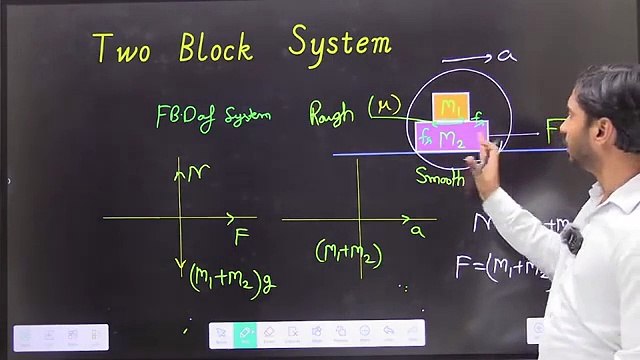 Two Block System
a
FBD of System
Rough (μ)
M₁
fr
fr
M₂
F
Smooth
N
F
(M₁+M₂)g
a
(M₁+M₂)
F=(M₁+M₂)